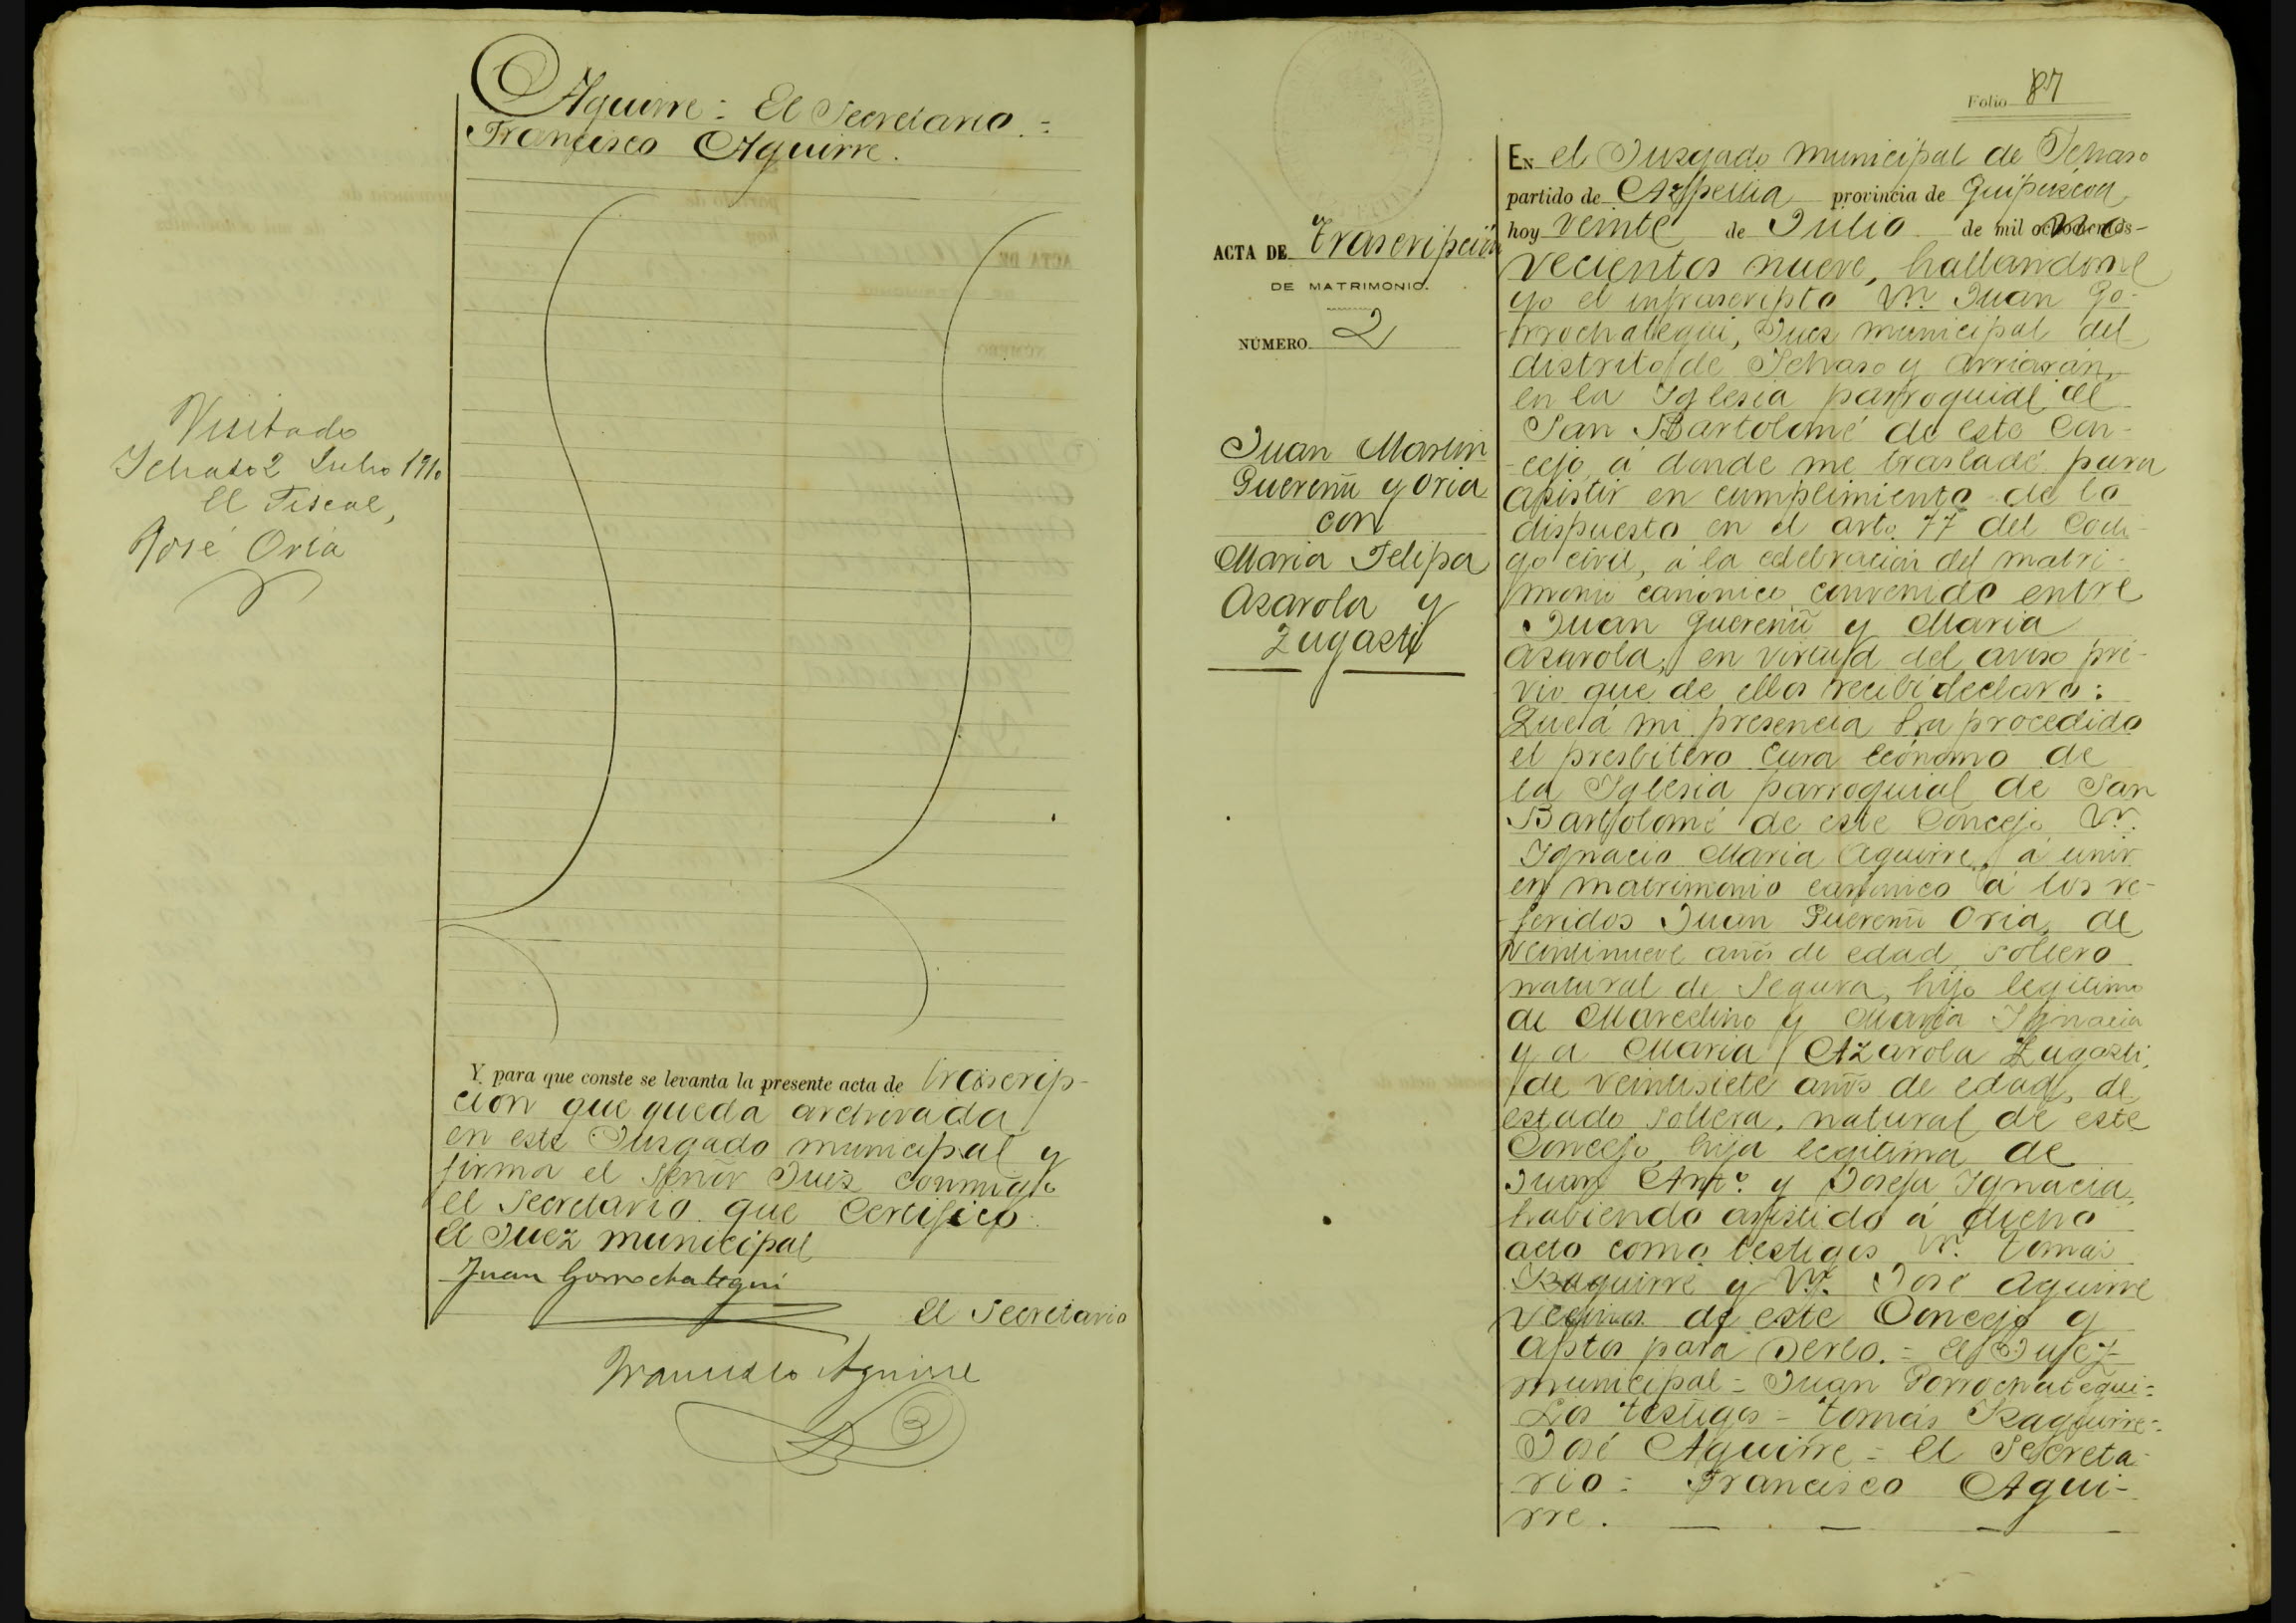 Aguirre = El Secretario =
Francisco Aguirre.
Visitado
Ichaso 2 Julio 1910
El Fiscal,
José Oria
Y para que conste se levanta la presente acta de trascrip-
cion que queda archivada
en este Jusgado municipal y
firma el señor Juez conmigo
el Secretario que Certifico.
El Juez municipal
Juan Gorrochategui
El Secretario
Francisco Aguirre
Folio 87
ACTA DE trascripción
DE MATRIMONIO.
NÚMERO 2
Juan Martin
Guereñu y Oria
con
Maria Felipa
Azarola y
Zugasti
EN el Jusgado municipal de Ichaso
partido de Azpeitia provincia de Guipúzcoa
hoy veinte de Julio de mil ochocientos no-
vecientos nueve, hallandome
yo el infrascripto Dn. Juan Go-
rrochategui, Juez municipal del
distrito de Ichaso y Arriarán,
en la Iglesia parroquial de
San Bartolomé de este Con-
cejo, á donde me trasladé para
asistir en cumplimiento de lo
dispuesto en el arto. 77 del Codi-
go civil, á la celebración del matri-
monio canónico convenido entre
Juan Guereñu y Maria
Azarola, en virtud del aviso pre-
vio que de ellos recibi declaro:
Que á mi presencia ha procedido
el presbitero Cura Ecónomo de
la Iglesia parroquial de San
Bartolomé de este Concejo Dn.
Ignacio Maria Aguirre, á unir
en matrimonio canónico á los re-
feridos Juan Guereñu Oria, de
veintinueve años de edad, soltero
natural de Segura, hijo legitimo
de Marcelino y Maria Ignacia
y a Maria Azarola Zugasti,
de veintisiete años de edad, de
estado soltera, natural de este
Concejo, hija legitima de
Juan Anto. y Josefa Ignacia,
habiendo asistido á dicho
acto como testigos Dn. Tomás
Izaguirre y Dn. José Aguirre
vecinos de este Concejo y
aptos para serlo. = El Juez
municipal = Juan Gorrochategui =
Los testigos = Tomás Izaguirre =
José Aguirre = El Secreta-
rio = Francisco Agui-
rre.